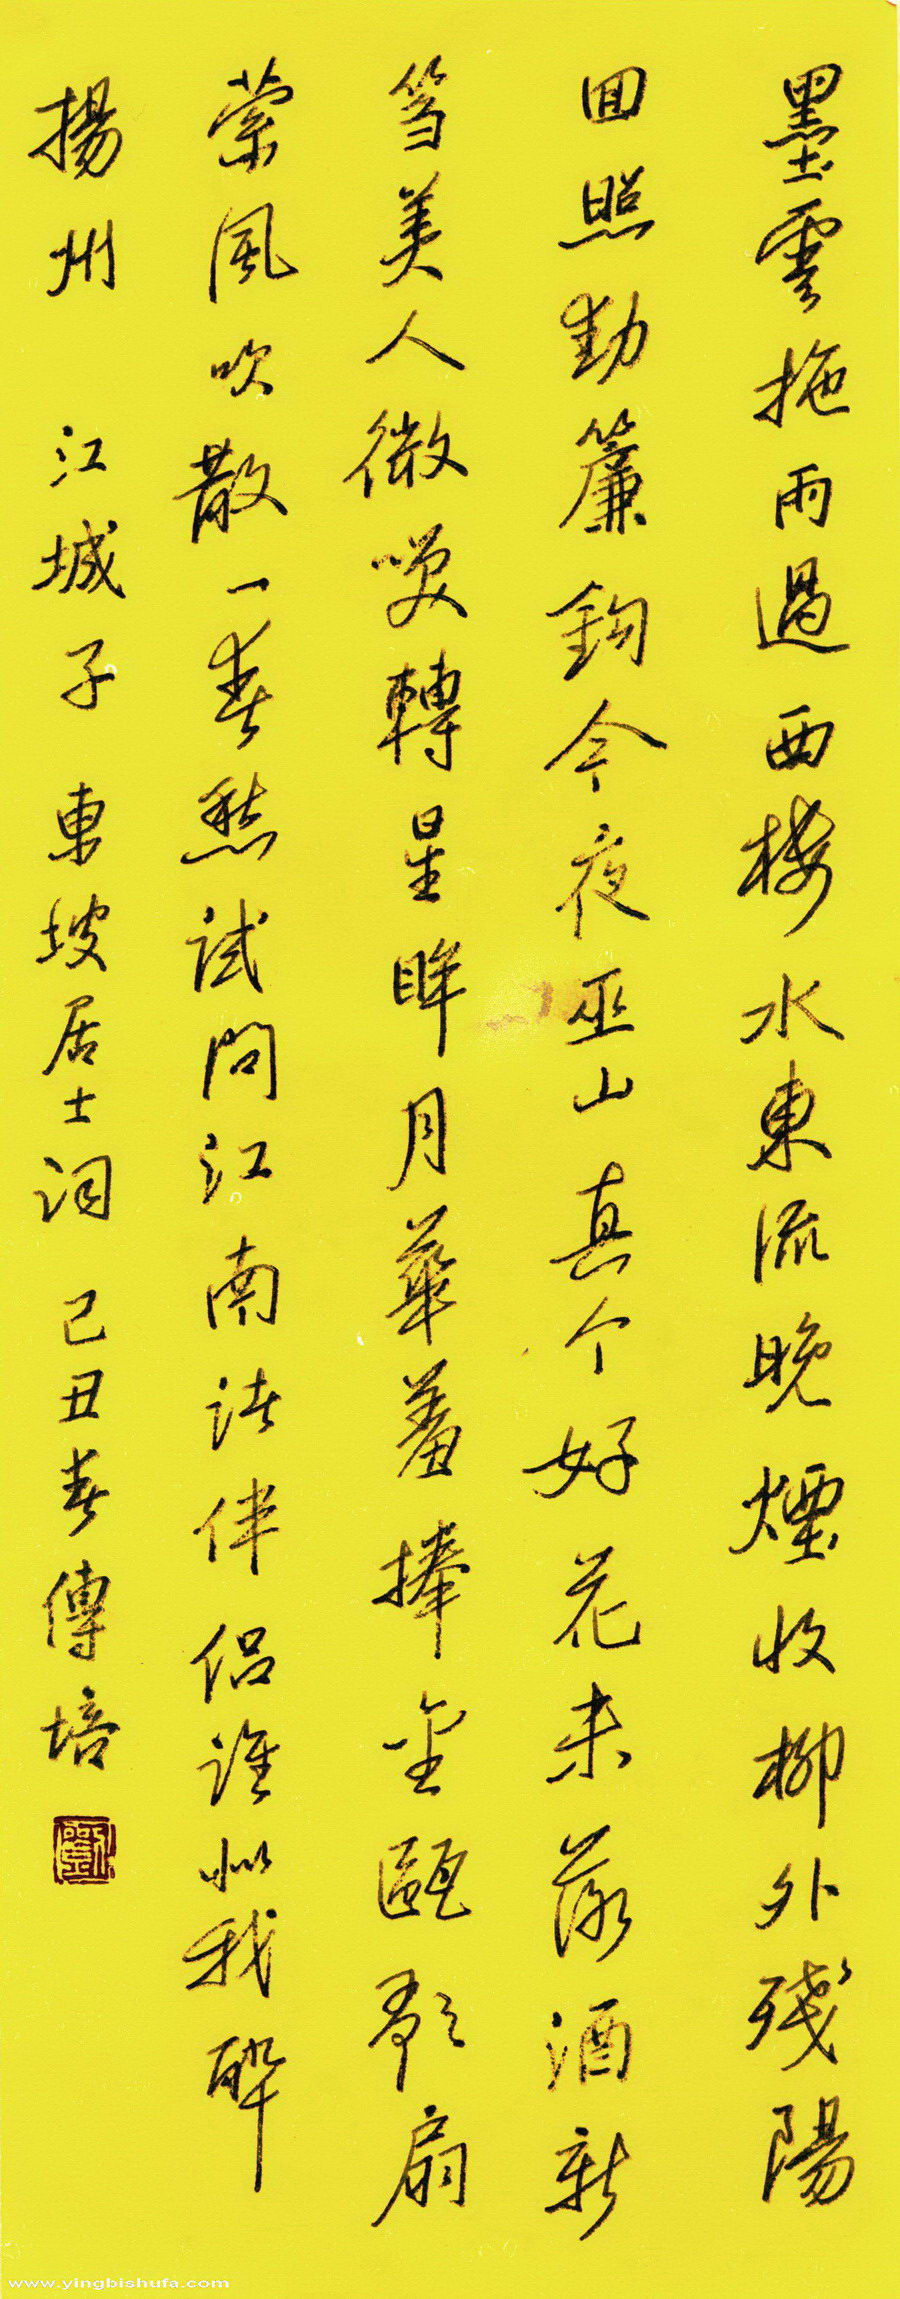 墨雲拖雨過西樓水東流晚煙收柳外殘陽
回照動簾鉤今夜巫山真个好花未落酒新
篘美人微笑轉星眸月華羞捧金甌歌扇
縈風吹散一春愁試問江南諸伴侶誰似我醉
揚州 江城子 東坡居士詞 己丑春傳培
www.yingbishufa.com